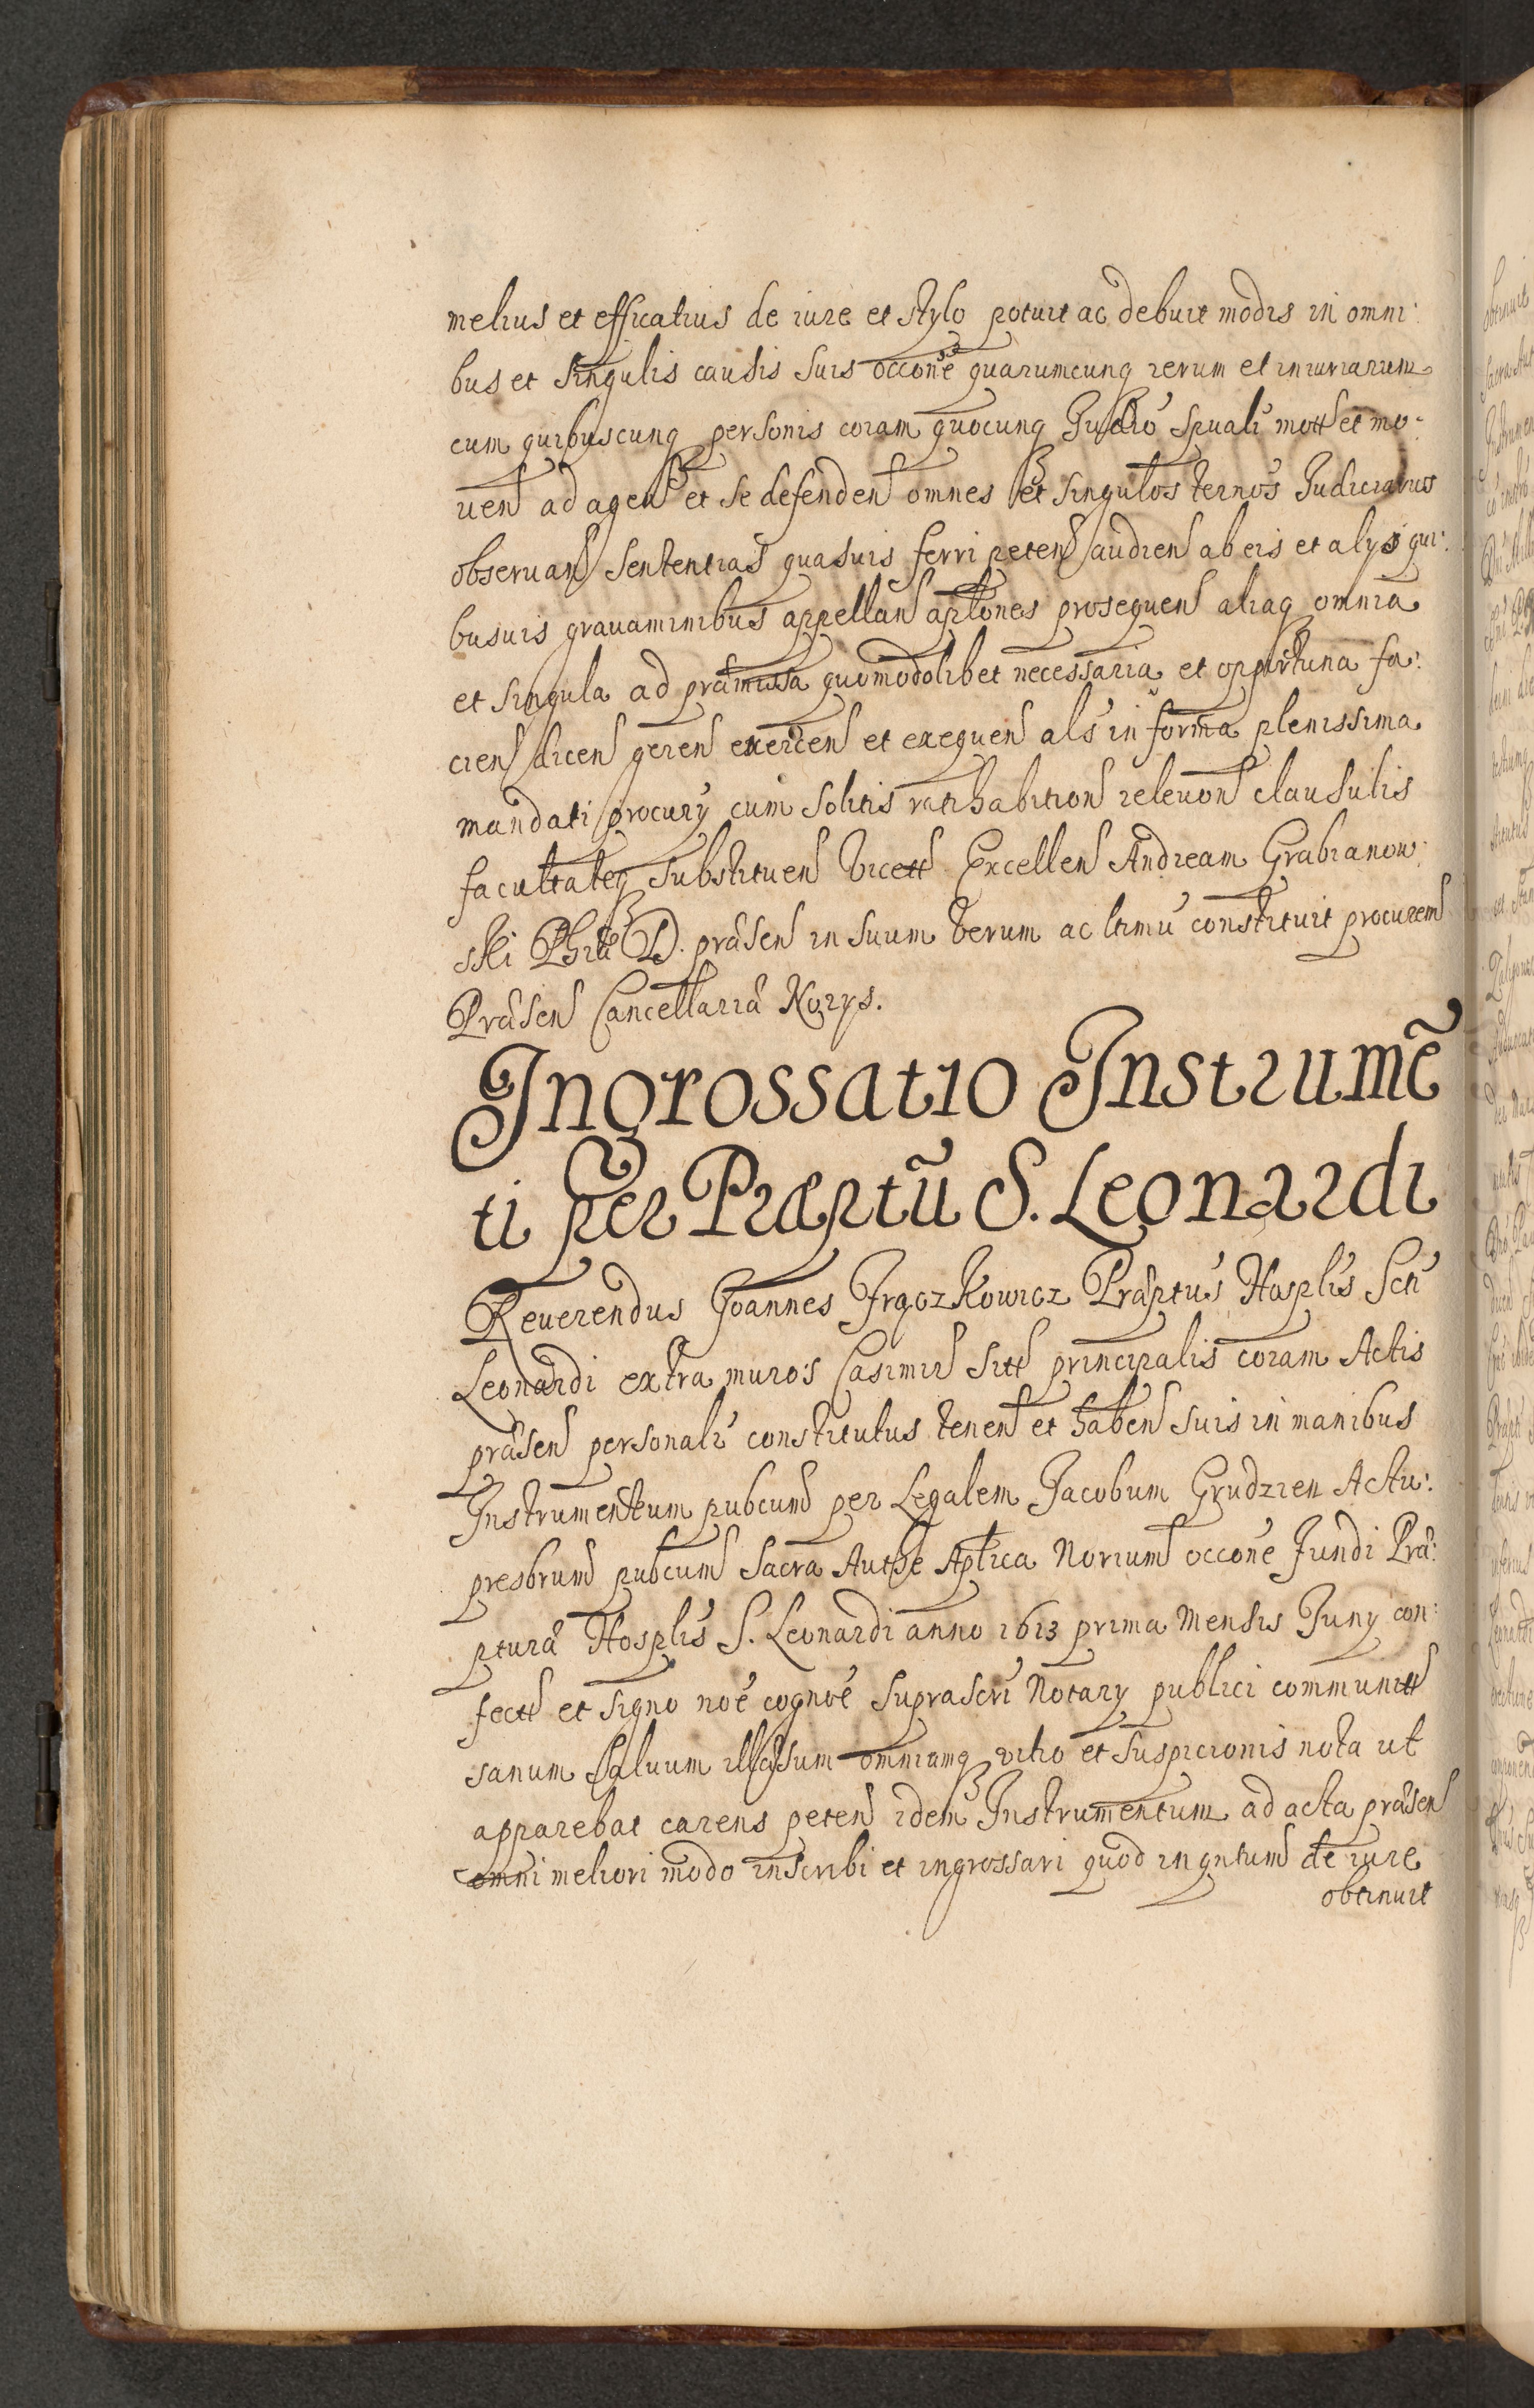 melius et efficatius de iure et stylo potuit ac debuit modis in omni:
bus et singulis causis suis occōne quarumcunq rerum et iniuriarum
cum quibuscunq personis coram quocunq Judio spuali mott et mo:
uen ad agen et se defenden omnes et singulos ternos Judiciarios
obseruan sententias quasuis ferri peten audien ab eis et alys qui:
busuis grauaminibus appellan aplones prosequen aliaq omnia
et singula ad præmissa quomodolibet necessaria et opportuna fa:
cien dicen geren exercen et exequen als in forma plenissima
mandati procury cum solitis ratihabition releuon clausulis
facultateq substituen Excellen Andream Grabianow:
ski D. præsen in suum verum ac ltimu constituit procurem
Præsen Cancellaria Norys.
Ingrossatio Instrumē
ti per Præptū S. Leonardi
Reuerendus Joannes Frączkowicz Præptus Hosplis Scti
Leonardi extra muros Casimir sitt principalis coram Actis
præsen personalr constitutus tenen et haben suis in manibus
Instrumentum pubcum per Legalem Jacobum Grudzien Actu:
presbrum pubcum Sacra Authe Aplica Norium occone Fundi Præ:
ptura Hosplis S. Leonardi anno 1613 prima Mensis Juny con:
fectt et signo noe cognoe suprascri Notary publici communitt
sanum saluum illæsum omniamq vitio et suspicionis nota ut
apparebat carens peten idem Instrumentum ad acta præsen
omni meliori modo inscribi et ingrossari quod inqntum de iure
obtinuit